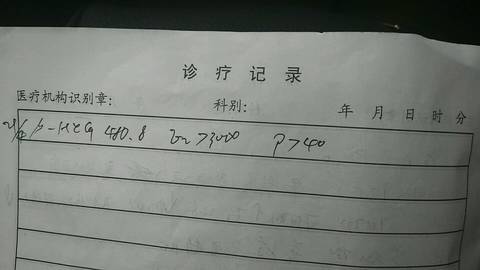 诊疗记录
医疗机构识别章： 科别： 年 月 日 时 分
β-HCG 480.8 E₂ >3000 P>40